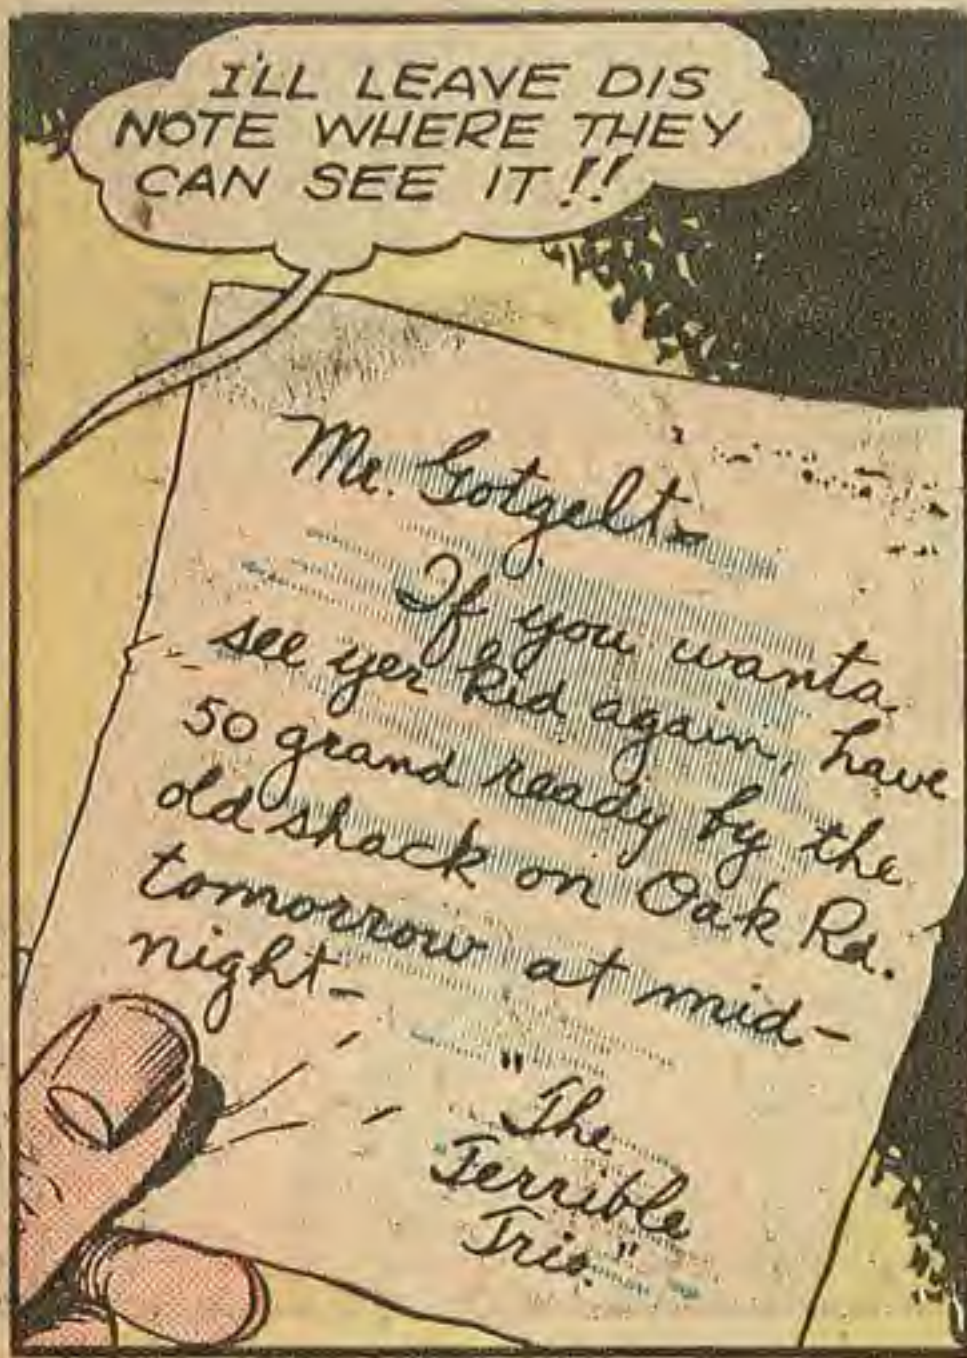 I'LL LEAVE DIS
NOTE WHERE THEY
CAN SEE IT!!
Mr. Gotgelt-
If you wanta
see yer kid again, have
50 grand ready by the
old shack on Oak Rd.
tomorrow at mid-
night-
"The
Terrible
Trio."